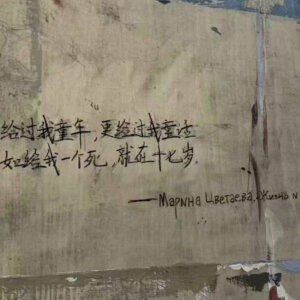 给过我童年，更给过我童话
如给我一个死，就在十七岁。
——Марина Цветаева, Жизнь и